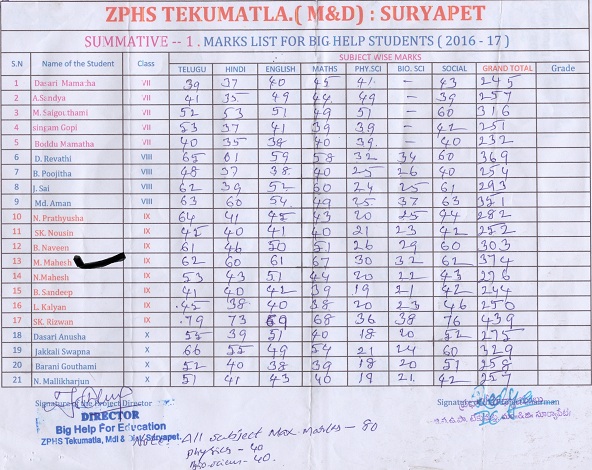 ZPHS TEKUMATLA.( M&D) : SURYAPET
SUMMATIVE -- 1 . MARKS LIST FOR BIG HELP STUDENTS ( 2016 - 17 )
S.N Name of the Student Class SUBJECT WISE MARKS
TELUGU HINDI ENGLISH MATHS PHY.SCI BIO. SCI SOCIAL GRAND TOTAL Grade
1 Dasari Mamatha VII 39 37 40 45 41 - 43 245
2 A.Sandya VII 41 35 49 44 49 - 39 257
3 M. Saigouthami VII 52 53 51 49 51 - 60 316
4 singam Gopi VII 53 37 41 39 39 - 42 251
5 Boddu Mamatha VII 40 35 38 40 39 - 40 232
6 D. Revathi VIII 65 61 59 58 32 34 60 369
7 B. Poojitha VIII 48 37 38 40 25 26 40 254
8 J. Sai VIII 62 39 52 60 24 25 61 293
9 Md. Aman VIII 63 60 54 49 25 37 63 351
10 N. Prathyusha IX 64 41 45 43 20 25 44 282
11 SK. Nousin IX 45 40 41 40 21 23 42 252
12 B. Naveen IX 61 46 50 51 26 29 60 303
13 M. Mahesh IX 62 60 61 67 30 32 62 374
14 N.Mahesh IX 53 43 51 44 20 22 43 276
15 B. Sandeep IX 41 40 42 39 19 21 42 244
16 L. Kalyan IX 45 38 40 38 20 23 46 250
17 SK. Rizwan IX 79 73 69 68 36 38 76 439
18 Dasari Anusha X 55 39 51 40 18 20 52 275
19 Jakkali Swapna X 66 55 49 54 21 24 60 329
20 Barani Gouthami X 52 40 38 39 18 20 51 258
21 N. Mallikharjun X 51 41 43 40 19 21 42 257
Signature of the Project Director
DIRECTOR
Big Help For Education
ZPHS Tekumatla, Mdl & Suryapet.
Note: All subject Max. Marks - 80
physics - 40
Bio science - 40.